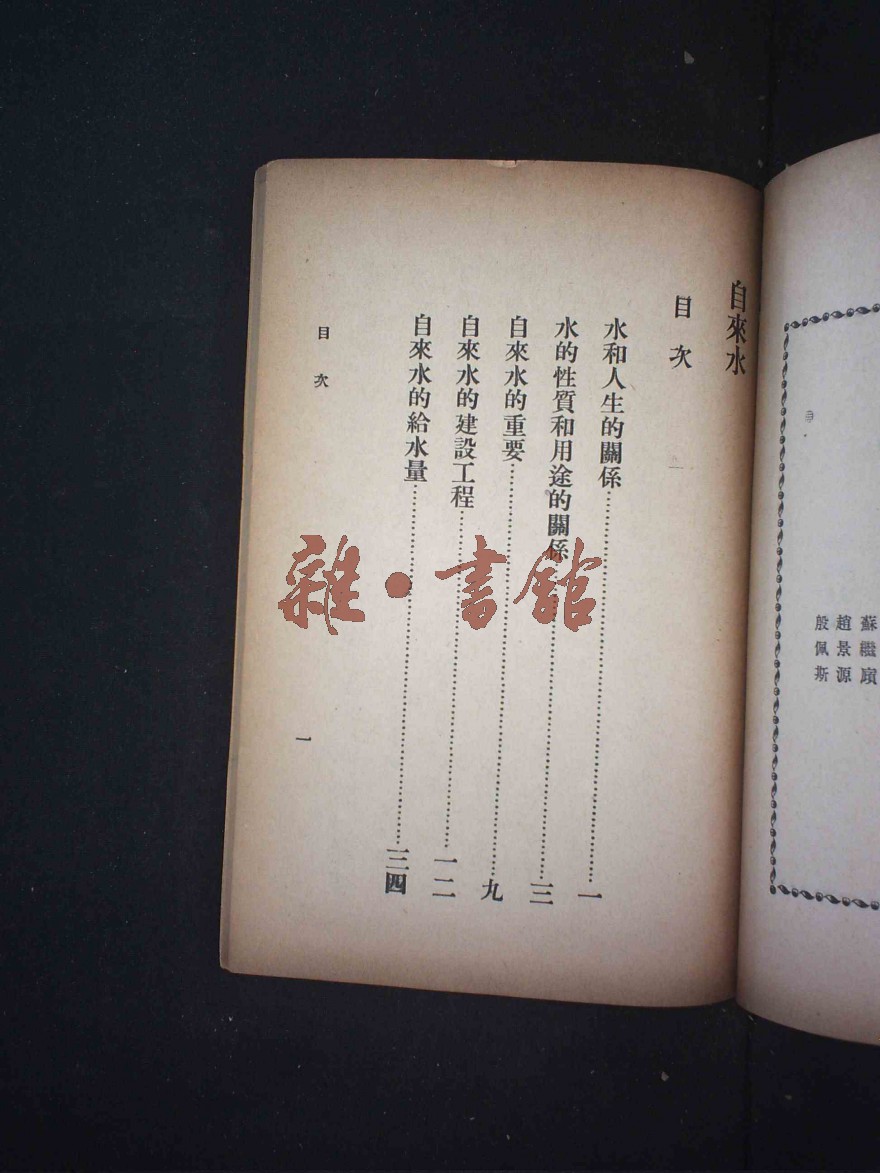 蘇繼廎
趙景源
殷佩斯
自來水
目次
水和人生的關係……一
水的性質和用途的關係……三
自來水的重要……九
自來水的建設工程……一二
自來水的給水量……三四
目次
一
雜·書館